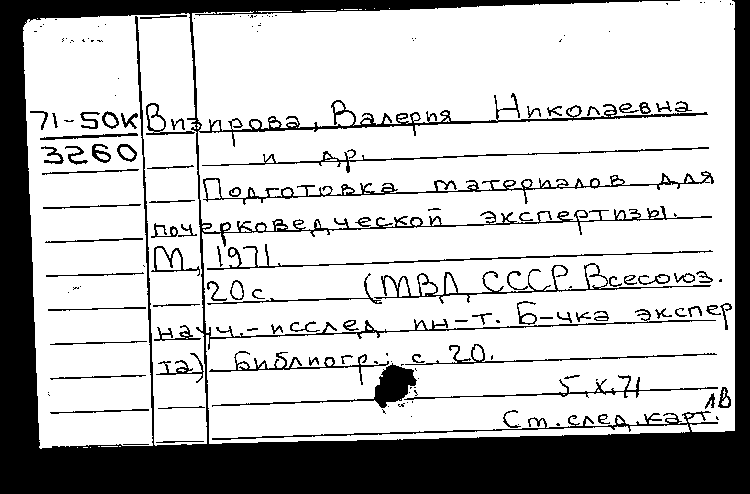 71-50К Визирова, Валерия Николаевна
3260 и др.
Подготовка материалов для
почерковедческой экспертизы.
М., 1971.
20 с. (МВД СССР. Всесоюз.
науч.-исслед. ин-т. Б-чка экспер
та) Библиогр.: с. 20.
5.X.71
Ст. след. карт. ЛВ